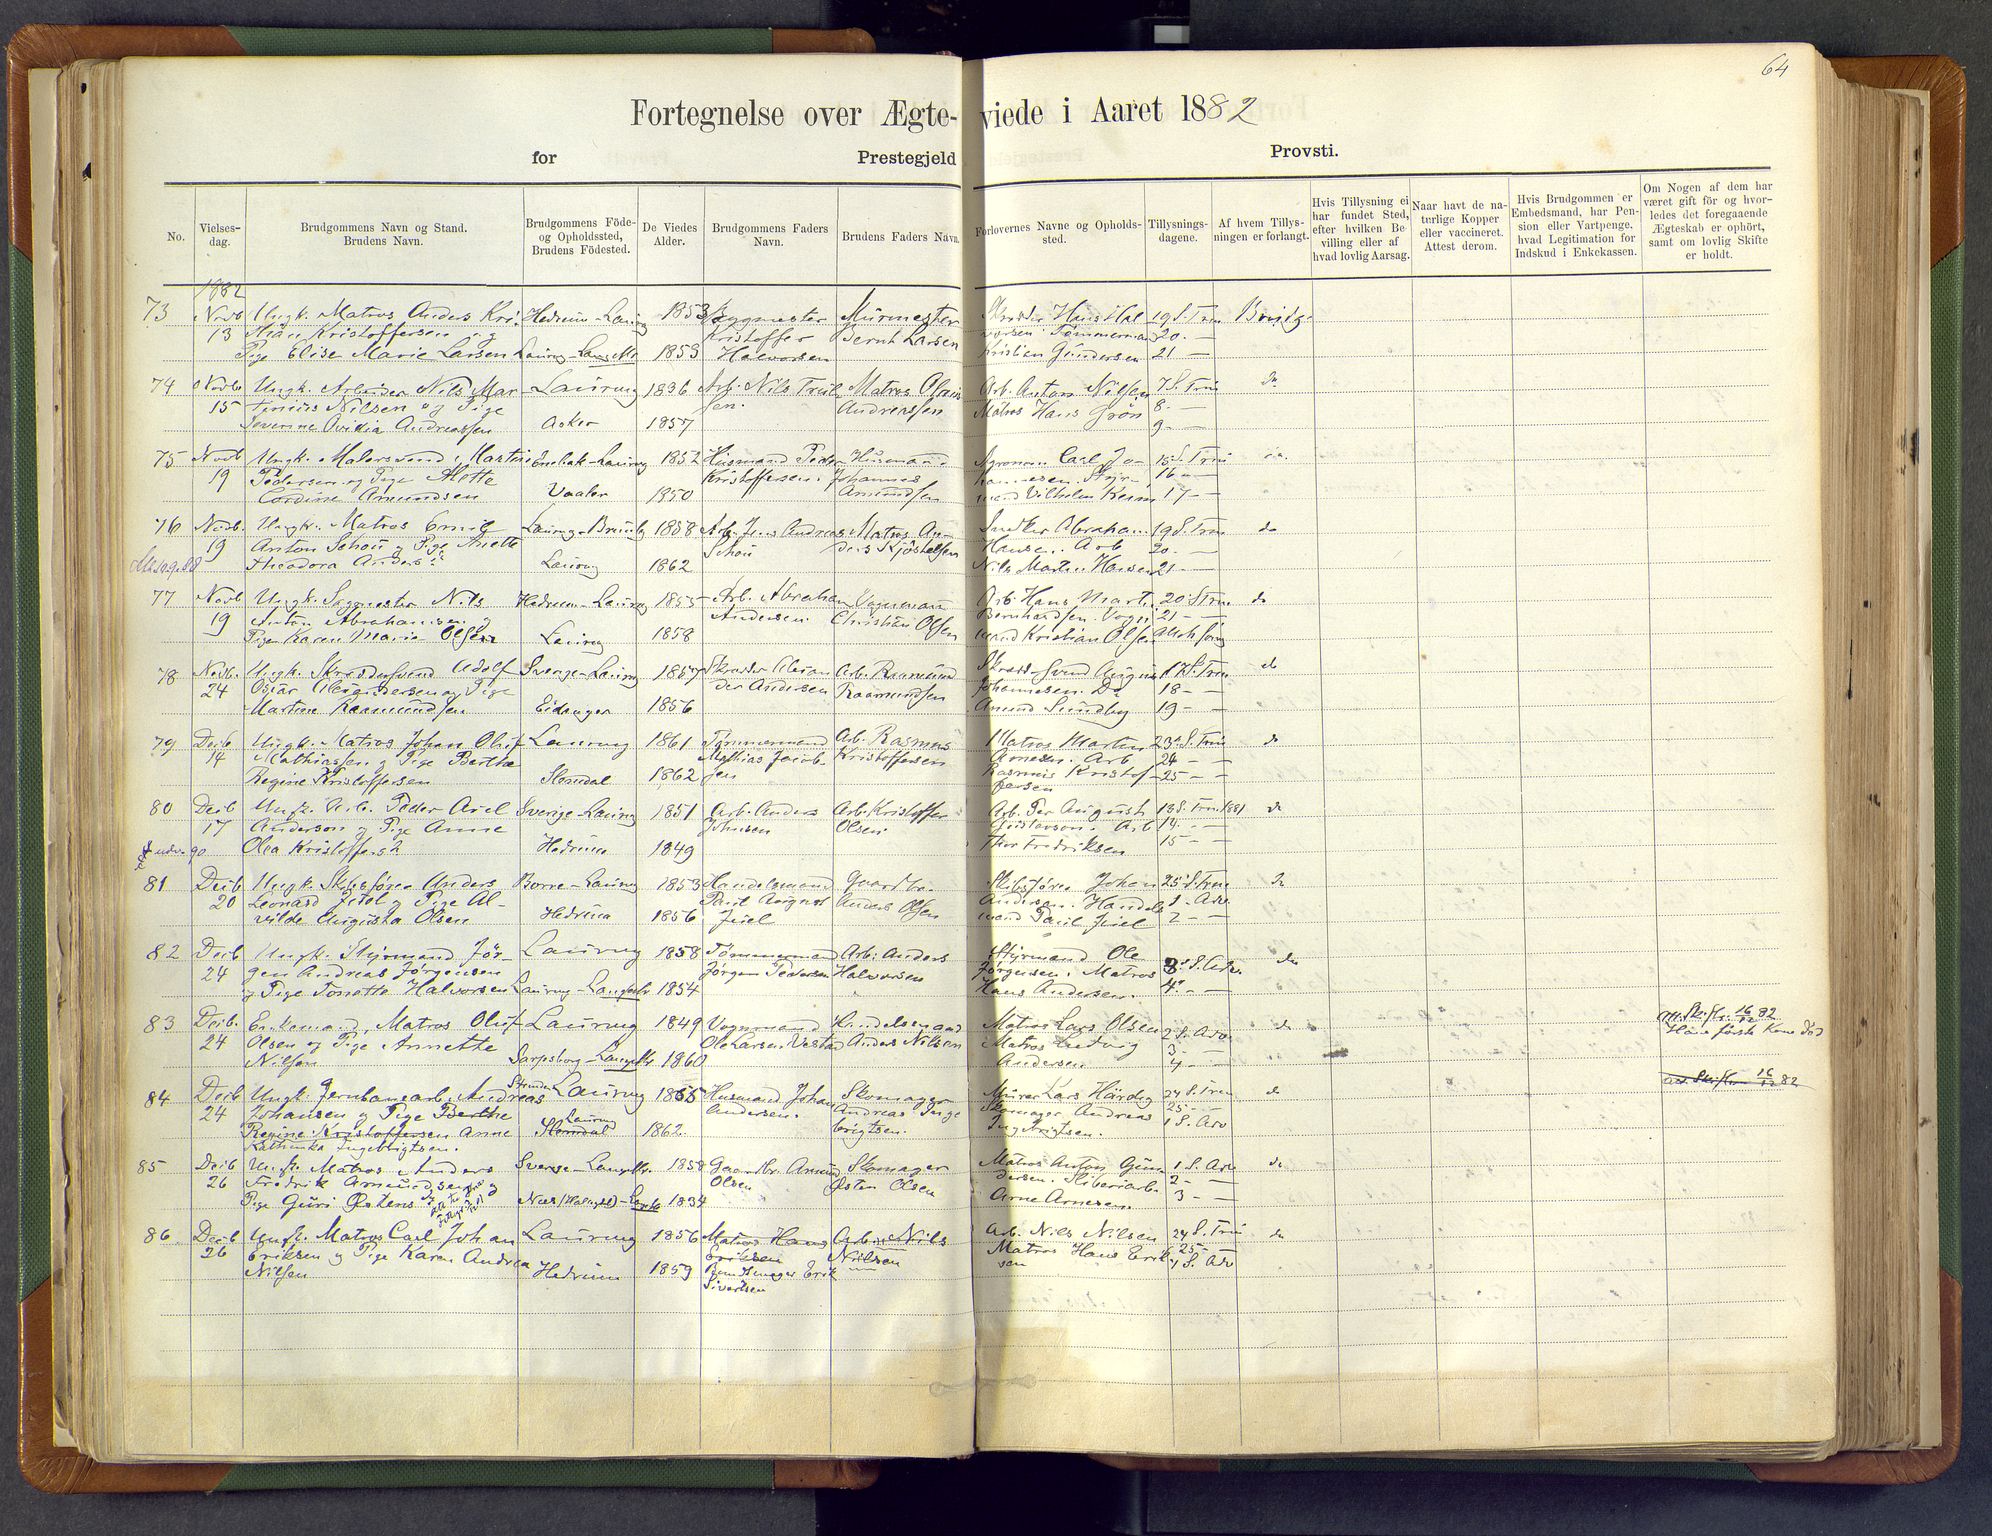 64
Fortegnelse over Ægte- viede i Aaret 1882
for Prestegjeld Provsti.
No.
Vielses-
dag.
Brudgommens Navn og Stand.
Brudens Navn.
Brudgommens Føde-
og Opholdssted,
Brudens Fødested.
De Viedes
Alder.
Brudgommens Faders
Navn.
Brudens Faders Navn.
Forlovernes Navne og Opholds-
sted.
Tillysnings-
dagene.
Af hvem Tillys-
ningen er forlangt.
Hvis Tillysning ei
har fundet Sted,
efter hvilken Be-
villing eller af
hvad lovlig Aarsag.
Naar havt de na-
turlige Kopper
eller vaccineret.
Attest derom.
Hvis Brudgommen er
Embedsmand, har Pen-
sion eller Vartpenge,
hvad Legitimation for
Indskud i Enkekassen.
Om Nogen af dem har
været gift før og hvor-
ledes det foregaaende
Ægteskab er ophørt,
samt om lovlig Skifte
er holdt.
1882
73 Novb Ungk. Matros Anders Kri- Hedrum-Laurvig 1853 Bygmester Murmester Hans Hal- 19 S. Trin Brudg.
13 Kristoffersen og Kristoffer Bernt Larsen vorsen Tømmermand 20 - —
Pige Elise Marie Larsen Laurv-Langestr 1853 Halvorsen Kristian Gundersen 21 —
74 Novb Ungk. Arbeider Nils Mar- Laurvig 1836 Arb. Nils Truls- Matros Olaus Arb. Anton Nilsen 7 S. Trin do
15 tinius Nilsen og Pige sen. Andreassen Matros Hans Grøn 8. —
Severine Ovidia Andreassen Asker 1857 9 - —
75 Novb Ungk. Malersvend Martin Enebak-Laurvig 1852 Husmand Peder Husmand Agronom Carl Jo- 15 S. Trin
19 Pedersen og Pige Alette Kristoffersen. Johannes hannesen. Styr- 16 - —
Cordine Amundsen Vaaler 1850 Amundsen mand Vilhelm 17 - —
76 Novb. Ungk. Matros Emil Laurvig- 1858 Arb. Jens Andreas Matros An- Snedker Abraham 19 S. Trin do
19 Anton Schou og Pige Anette Schou ders Kjøstelsen Hansen. Arb 20. —
Theodora Anders: Laurvig 1862 Nils Martin Hansen 21 —
77 Novb Ungk. Sagmester Nils Hedrum-Laurvig 1855 Arb. Abraham Vognmand Arb Hans Martin 20 S. Trin do
19 Anton Abrahamsen og Andersen Christian Olsen Bernhardsen. Vogn- 21 —
Pige Karen Marie Olsen Laurvig 1858 mand Kristian Olsen
78 Novb. Ungk. Skræddersvend Adolf Sverige-Laurvig 1857 Arb. Raamund Skrædder Svend August 17 S. Trin do
24 Oscar Alexandersen og Pige der Andersen Raamundsen Johannesen. Do 18 - —
Martine Raamundsen Eidanger 1856 Amund Sundby 19 - —
79 Decb Ungk. Matros Johan Oluf Laurvig 1861 Tømmermand Arb. Rasmus Matros Martin 23 S. Trin do
14 Mathiassen og Pige Berthe Mathias Jacob- Kristoffersen Arnesen. Arb 24 - —
Regine Kristoffersen Slemdal 1862 sen Rasmus Kristof- 25 - —
fersen
80 Decb Ungk. Arb. Peder Axel Sverige-Laurvig 1851 Arb. Anders Arb. Kristoffer Arb. Per August 13 S. Trin 1881 do
17 Anderson og Pige Anne Johnsen Olsen Gustavson. Arb 14. —
Olea Kristoffers: Hedrum 1849 Thor Fredriksen 15 - —
81 Decb Ungk. Skibsfører Anders Borre-Laurvig 1853 Handelsmand Gaardbr. Skibsfører Johan 25 S. Trin do
20 Leonard Juel og Pige Al- Paul August Anders Olsen Andersen. Handels- 1 - Adv
vilde Augusta Olsen Hedrum 1856 Juel mand Paul Juel 2 - —
82 Decb Ungk. Styrmand Jør- Laurvig 1858 Tømmermand Arb. Anders Styrmand Ole 3 S. Adv. do
24 gen Andreas Jørgensen Jørgen Pedersen Halvorsen Jørgensen. Matros 4 - —
og Pige Tonette Halvorsen Laurvig-Langestr 1854 Hans Andersen.
83 Decb. Enkemand, Matros Oluf Laurvig 1849 Vognmand Handelsmand Matros Lars Olsen 2 S. Adv do 16/12 82
24 Olsen og Pige Annette Ole Larsen Vestad Anders Nilsen Matros Ludvig 3 - — Hans første Kone død
Nilsen Sarpsborg-Langestr 1860 Andersen 4 - —
84 Decb Ungk. Jernbanearb. Andreas Laurvig 1855 Husmand Johan Skomager Murer Lars Härdig 24 S. Trin do 16/12 82
24 Johansen og Pige Berthe Andersen. Andreas Inge- Skomager Andreas 25 - —
Regine Kristoffersen Anne Slemdal Laurvig 1862. brigtsen. Ingebrigtsen. 1 S. Adv
Kathinka Ingebrigtsen.
85 Decb Ungk. Matros Anders Sverige-Langestr. 1858 Gaardbr. Amund Skomager Matros Anton Gun- 1 S. Adv do
26 Fredrik Amundsen og Olsen Østen Olsen dersen. Sliberiarb. 2 - —
Pige Guri Østens: Næs (Hallingdal)-Langestr 1834 Arne Arnesen. 3 - —
86 Decb Ungk. Matros Carl Johan Laurvig 1856 Matros Hans Arb. Nils Arb. Nils Nilsen 24 S. Trin do
26 Eriksen og Pige Karen Andrea Eriksen Nilsen Matros Hans Erik- 25 - —
Nilsen Hedrum 1859 Erik sen 1 S. Adv
Sivertsen